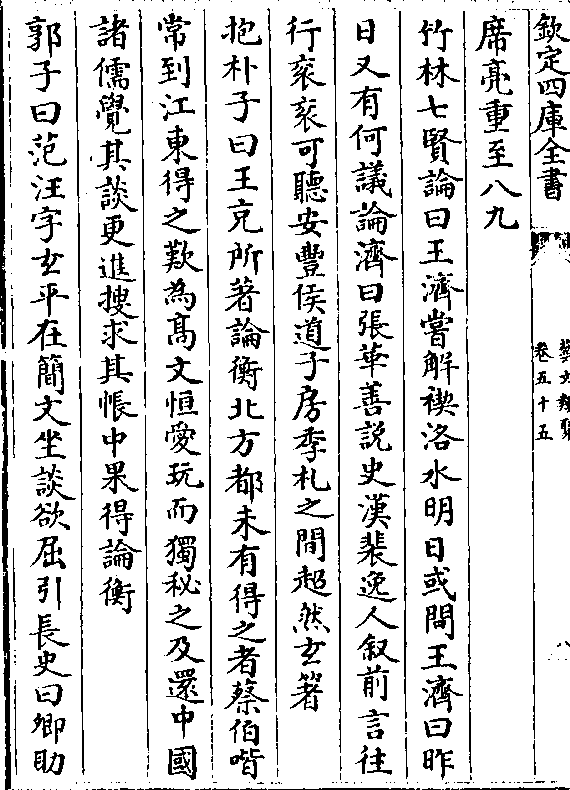 欽定四庫全書
藝文類聚
卷五十五
八
席亮重至八九
竹林七賢論曰王濟嘗解禊洛水明日或問王濟曰昨
日又有何議論濟曰張華善說史漢裴逸人叙前言往
行衮衮可聽安豐侯道子房季札之間超然玄箸
抱朴子曰王充所著論衡北方都未有得之者蔡伯喈
常到江東得之歎為髙文恒愛玩而獨秘之及還中國
諸儒覺其談更進搜求其帳中果得論衡
郭子曰范汪字玄平在簡文坐談欲屈引長史曰卿助